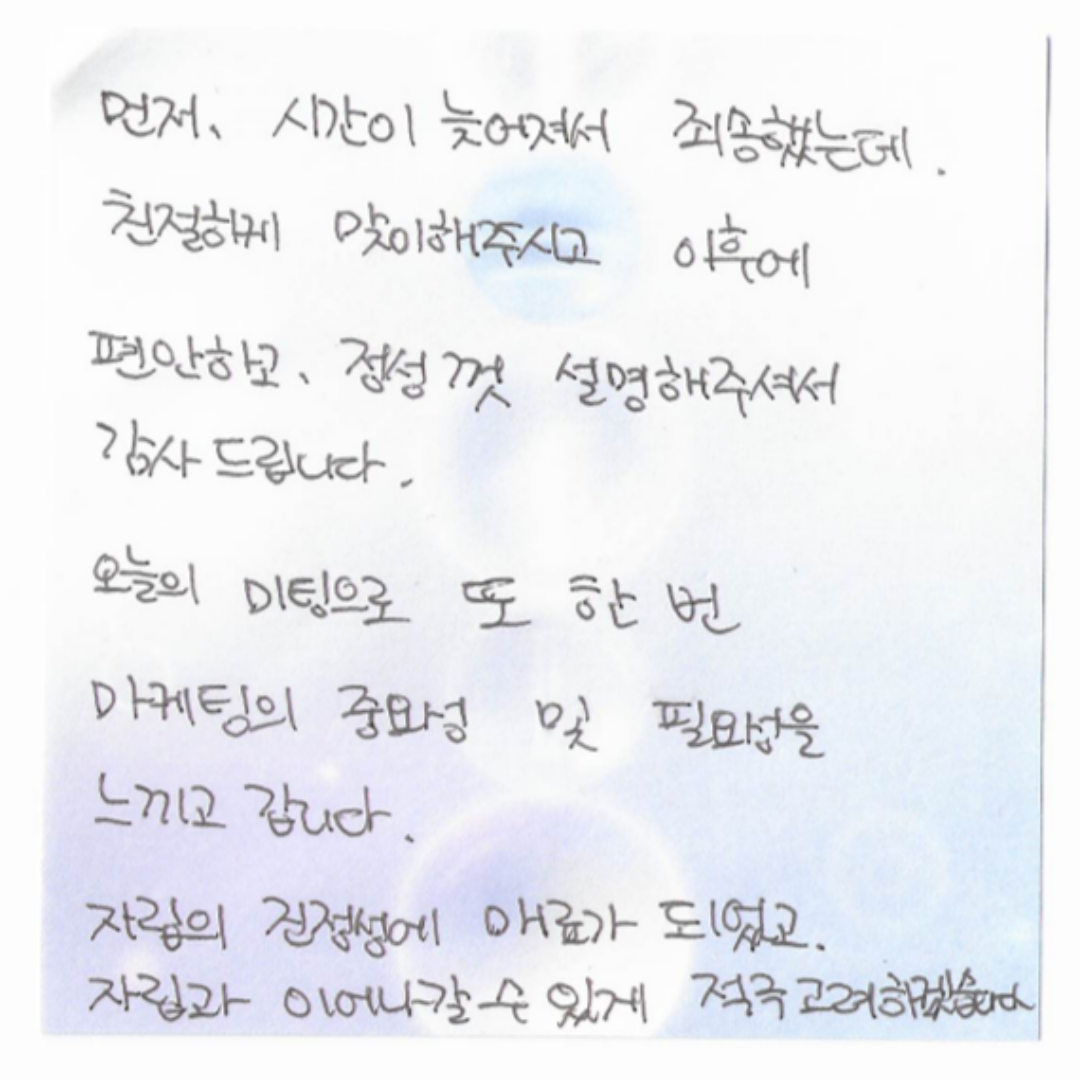 먼저, 시간이 늦어져서 죄송했는데.
친절하게 맞이해주시고 이후에
편안하고, 정성껏 설명해주셔서
감사 드립니다.
오늘의 미팅으로 또 한 번
마케팅의 중요성 및 필요성을
느끼고 갑니다.
자림의 진정성에 매료가 되었고.
자림과 이어나갈 수 있게 적극 고려하겠습니다